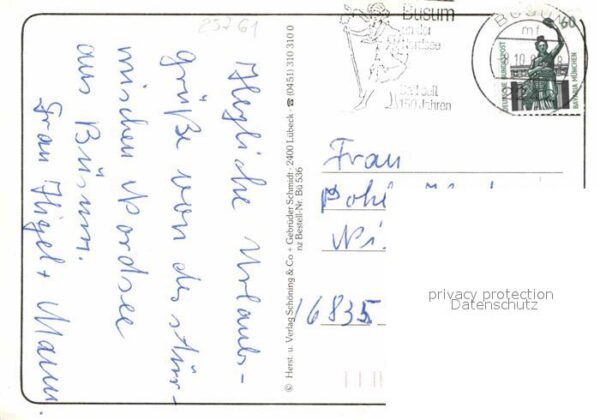 25761
Herzliche Urlaubs-
grüße von der stür-
mischen Nordsee
aus Büsum.
Frau + Mann.
© Herst. u. Verlag Schöning & Co + Gebrüder Schmidt · 2400 Lübeck · ☎ (0451) 310 310 0
nz Bestell-Nr. Bü 536
Büsum
an der
Nordsee
Seit
150 Jahren
60
DEUTSCHE BUNDESPOST
BAVARIA MÜNCHEN
Frau
16835
privacy protection
Datenschutz